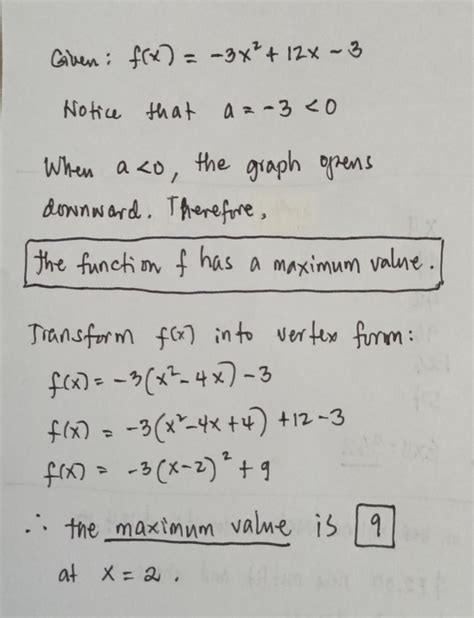 Given: f(x) = -3x² + 12x - 3
Notice that a = -3 < 0
When a < 0, the graph opens
downward. Therefore,
the function f has a maximum value.
Transform f(x) into vertex form:
f(x) = -3(x² - 4x) - 3
f(x) = -3(x² - 4x + 4) + 12 - 3
f(x) = -3(x - 2)² + 9
∴ the maximum value is 9
at x = 2.